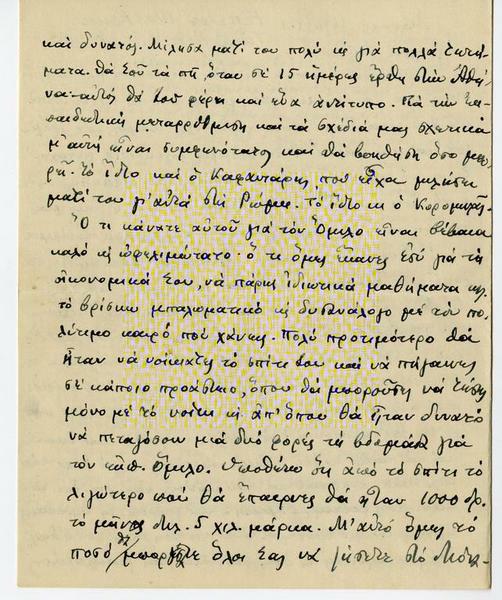 καὶ δυνατός. Μίλησα μαζί του πολὺ κι γιὰ πολλὰ ζητή-
ματα. Θὰ σοῦ τὰ πῆ, ὅταν σὲ 15 ἡμέρες ἔρθη στὴν Ἀθή-
να· αὐτὸς θὰ σου φέρει καὶ ἕνα ἀντίτυπο. Γιὰ τὴν ἐκ-
παιδευτικὴ μεταρρύθμιση καὶ τὰ σχέδιά μας σχετικὰ
μ' αὐτὴ εἶναι συμφωνότατος καὶ θὰ βοηθήση ὅσο μπο-
ρῆ. Τὸ ἴδιο καὶ ὁ Καφαντάρης, ποὺ εἶχα μιλήσει
μαζί του γι' αὐτὰ στὴ Ρώμη. Τὸ ἴδιο κι ὁ Κορομηλᾶς.
Ὅ τι κάνατε αὐτοῦ γιὰ τὸν Ὅμιλο εἶναι βέβαια
καλὸ κι ὠφελιμώτατο· ὅ τι ὅμως ἔκανες ἐσὺ γιὰ τὰ
οἰκονομικά σου, νὰ πάρης ἰδιωτικὰ μαθήματα κλ.
τὸ βρίσκω μπαλωματικὸ κι δυσανάλογο μὲ τὸν πο-
λύτιμο καιρὸ ποὺ χάνεις. Πολὺ προτιμότερο θὰ
ἦταν νὰ νοίκιαζες τὸ σπίτι σου καὶ νὰ πήγαινες
σὲ κάποιο προάστειο, ὅπου θὰ μποροῦσες νὰ ζήσης
μόνο μὲ τὸ νοίκι κι ἀπ' ὅπου θὰ ἦταν δυνατὸ
νὰ πεταγόσουν μιὰ δυὸ φορὲς τὴ βδομάδα γιὰ
τὸν Ὅμιλο. Ὑποθέτω ὅτι ἀπὸ τὸ σπίτι τὸ
λιγώτερο ποὺ θὰ ἔπαιρνες θὰ ἦταν 1000 δρ.
τὸ μῆνα, δηλ. 5 χιλ. μάρκα. Μ' αὐτὸ ὅμως τὸ
ποσὸ θὰ μπορούσατε ὅλοι σας νὰ ζήσετε στὸ